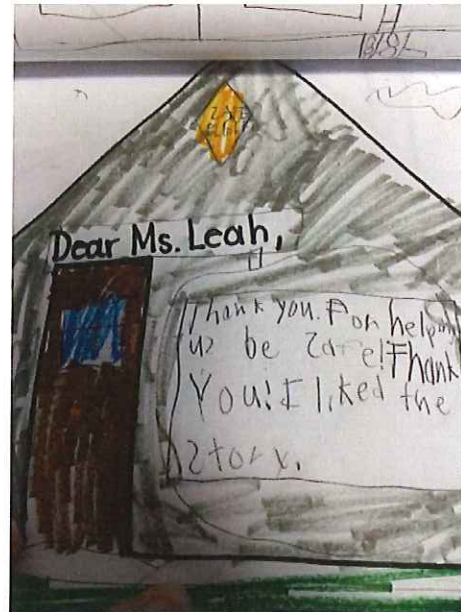 Dear Ms. Leah,
Thank you. For helping
us be safe! Thank
You! I liked the
story.